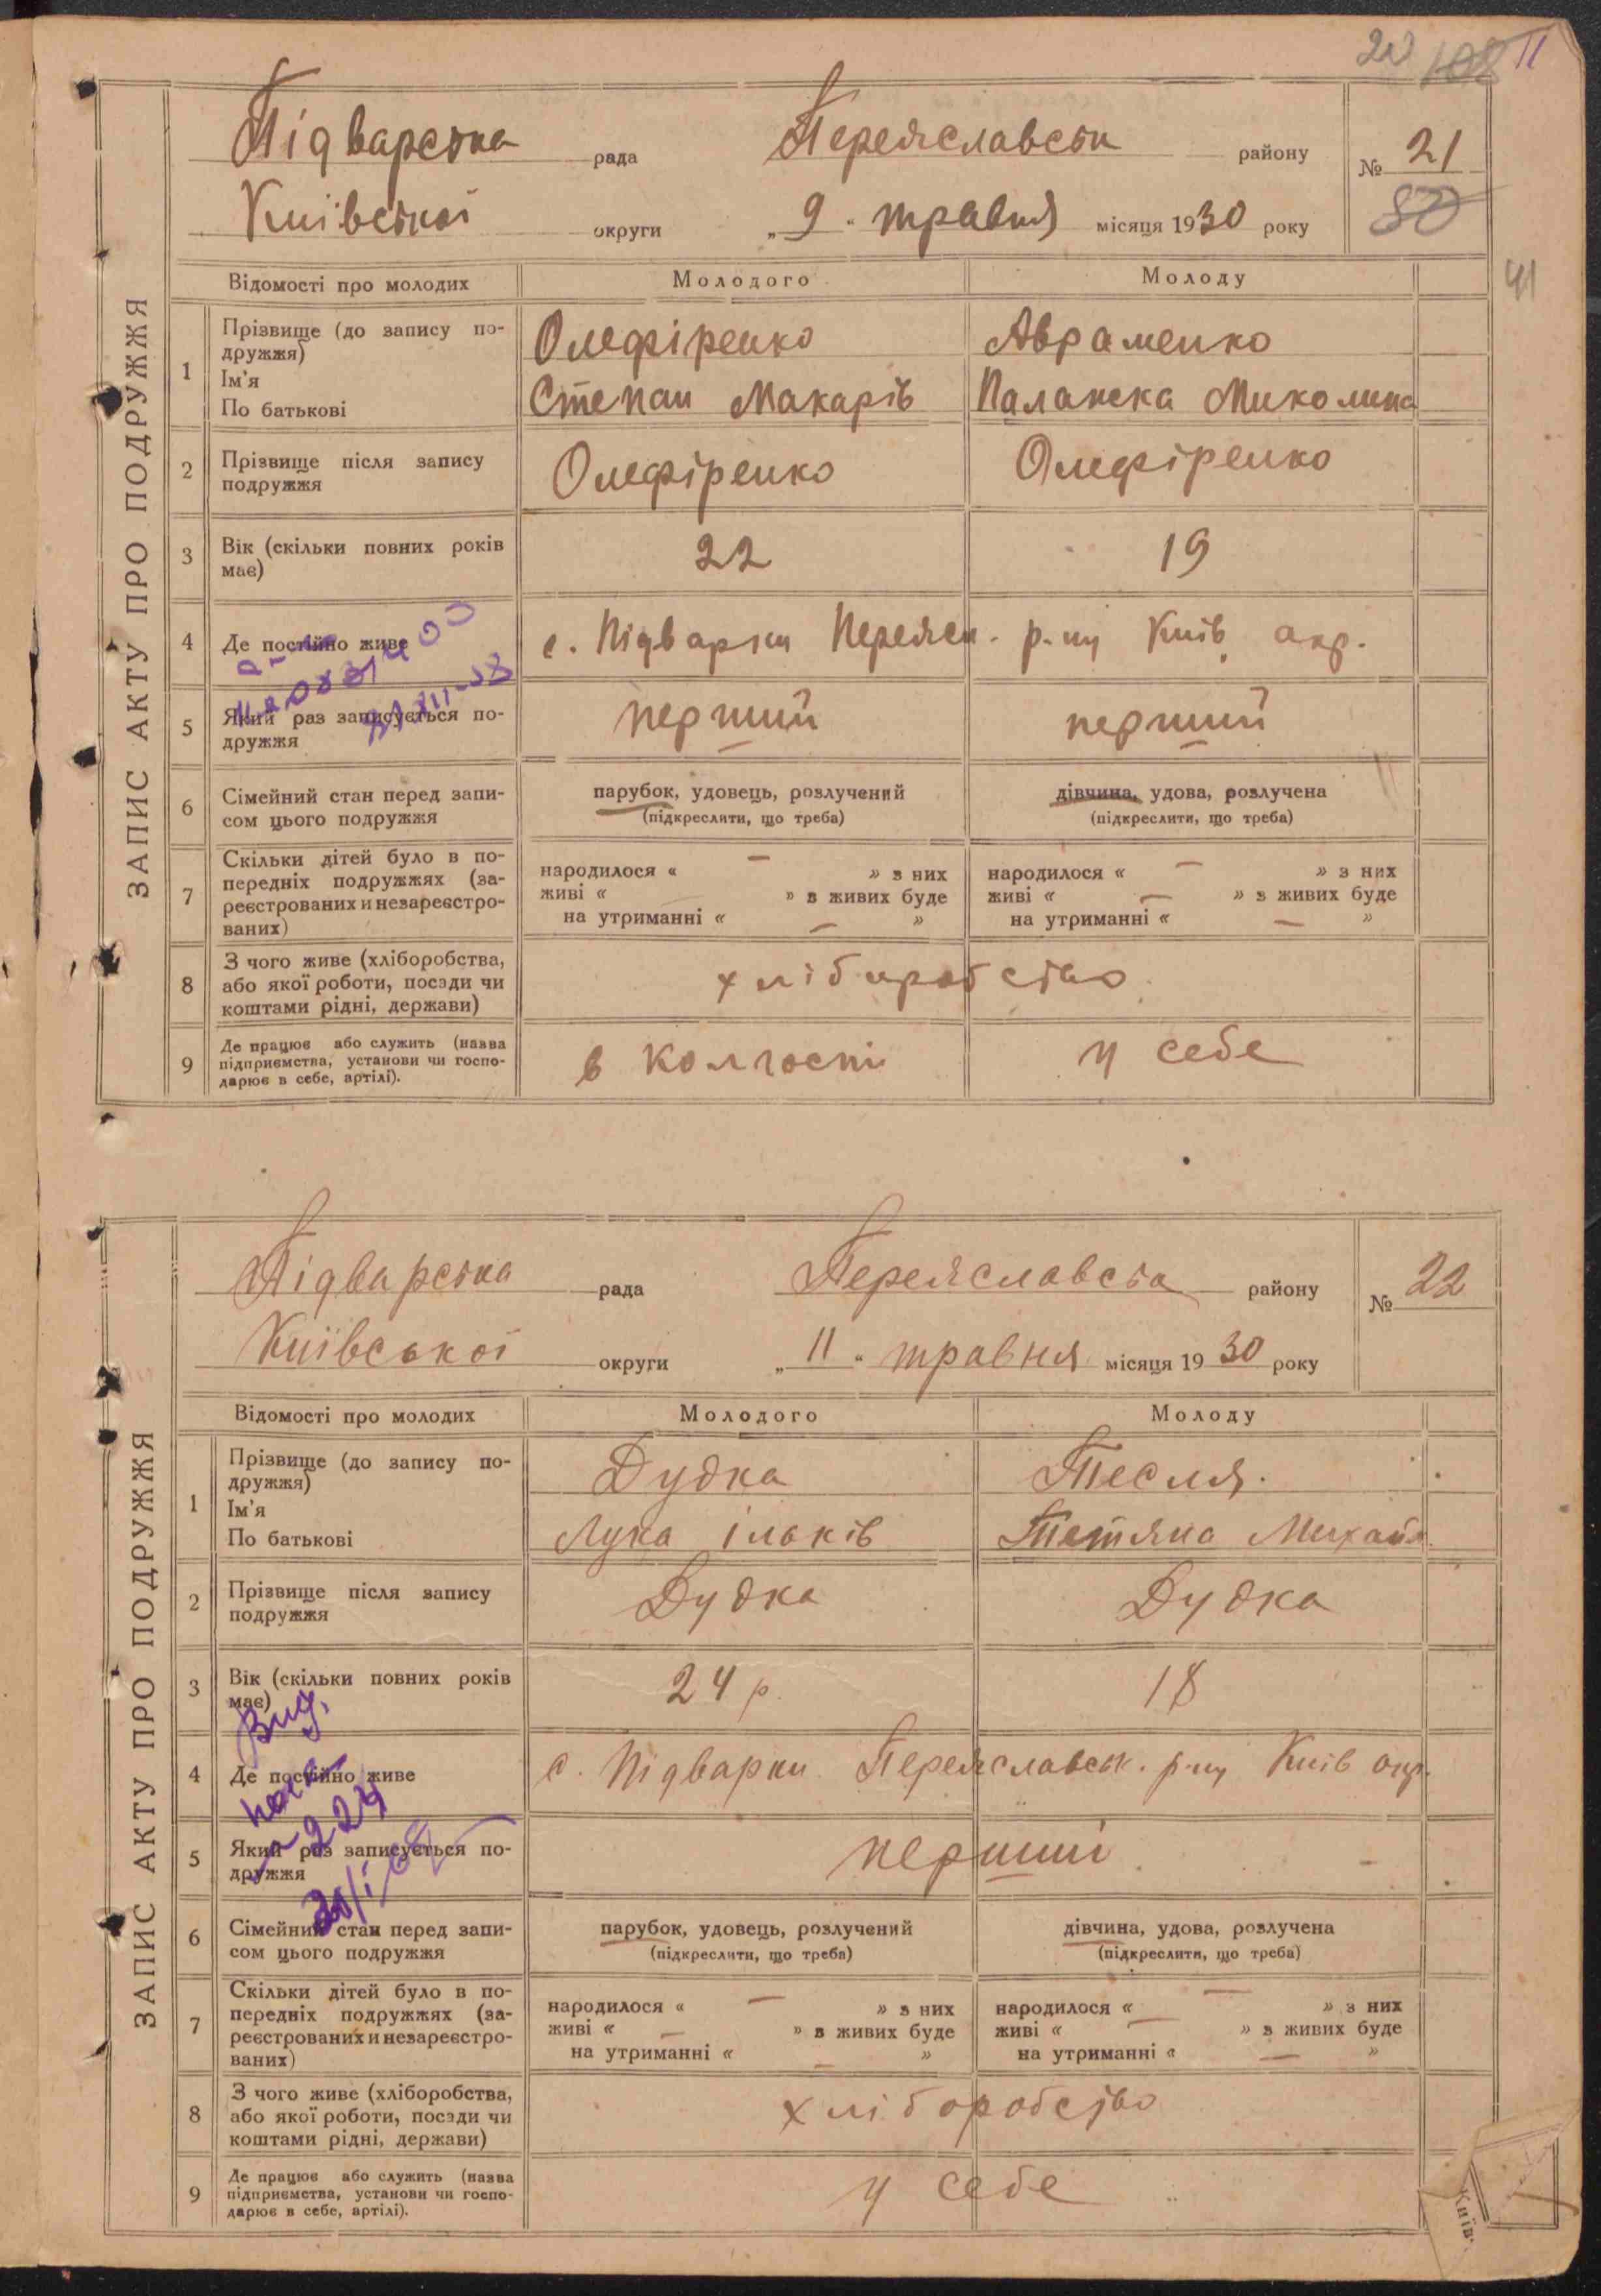 20 102 11
Підварська рада Переяславськ району № 21
Київської округи „ 9 “ травня місяця 1930 року 80
41
ЗАПИС АКТУ ПРО ПОДРУЖЖЯ
Відомості про молодих Молодого Молоду
1 Прізвище (до запису по-
дружжя) Олефіренко Авраменко
Ім'я
По батькові Степан Макарів Палажка Миколина
2 Прізвище після запису
подружжя Олефіренко Олефіренко
3 Вік (скільки повних років
має) 22 19
4 Де постійно живе с. Підварки Переясл. р-ну Київ. окр.
5 Який раз записується по-
дружжя перший перший
6 Сімейний стан перед запи-
сом цього подружжя
парубок, удовець, розлучений дівчина, удова, розлучена
(підкреслити, що треба) (підкреслити, що треба)
7 Скільки дітей було в по-
передніх подружжях (за-
реєстрованих и незареєстро-
ваних)
народилося « — » з них народилося « — » з них
живі « » з живих буде живі « — » з живих буде
на утриманні « — » на утриманні « — »
8 З чого живе (хліборобства,
або якої роботи, посади чи
коштами рідні, держави)
хліборобство
9 Де працює або служить (назва
підприємства, установи чи госпо-
дарює в себе, артілі).
в колгоспі у себе
Підварська рада Переяславська району № 22
Київської округи „ 11 “ травня місяця 1930 року
ЗАПИС АКТУ ПРО ПОДРУЖЖЯ
Відомості про молодих Молодого Молоду
1 Прізвище (до запису по-
дружжя) Дудка Тесля.
Ім'я
По батькові Лука Ільків Тетяна Михайл.
2 Прізвище після запису
подружжя Дудка Дудка
3 Вік (скільки повних років
має) 24 р. 18
Вид.
4 Де постійно живе с. Підварки Переяславськ. р-ну Київ окр.
5 Який раз записується по-
дружжя перший
6 Сімейний стан перед запи-
сом цього подружжя
парубок, удовець, розлучений дівчина, удова, розлучена
(підкреслити, що треба) (підкреслити, що треба)
7 Скільки дітей було в по-
передніх подружжях (за-
реєстрованих и незареєстро-
ваних)
народилося « — » з них народилося « — » з них
живі « — » з живих буде живі « — » з живих буде
на утриманні « — » на утриманні « — »
8 З чого живе (хліборобства,
або якої роботи, посади чи
коштами рідні, держави)
хліборобство
9 Де працює або служить (назва
підприємства, установи чи госпо-
дарює в себе, артілі).
у себе
Київ.